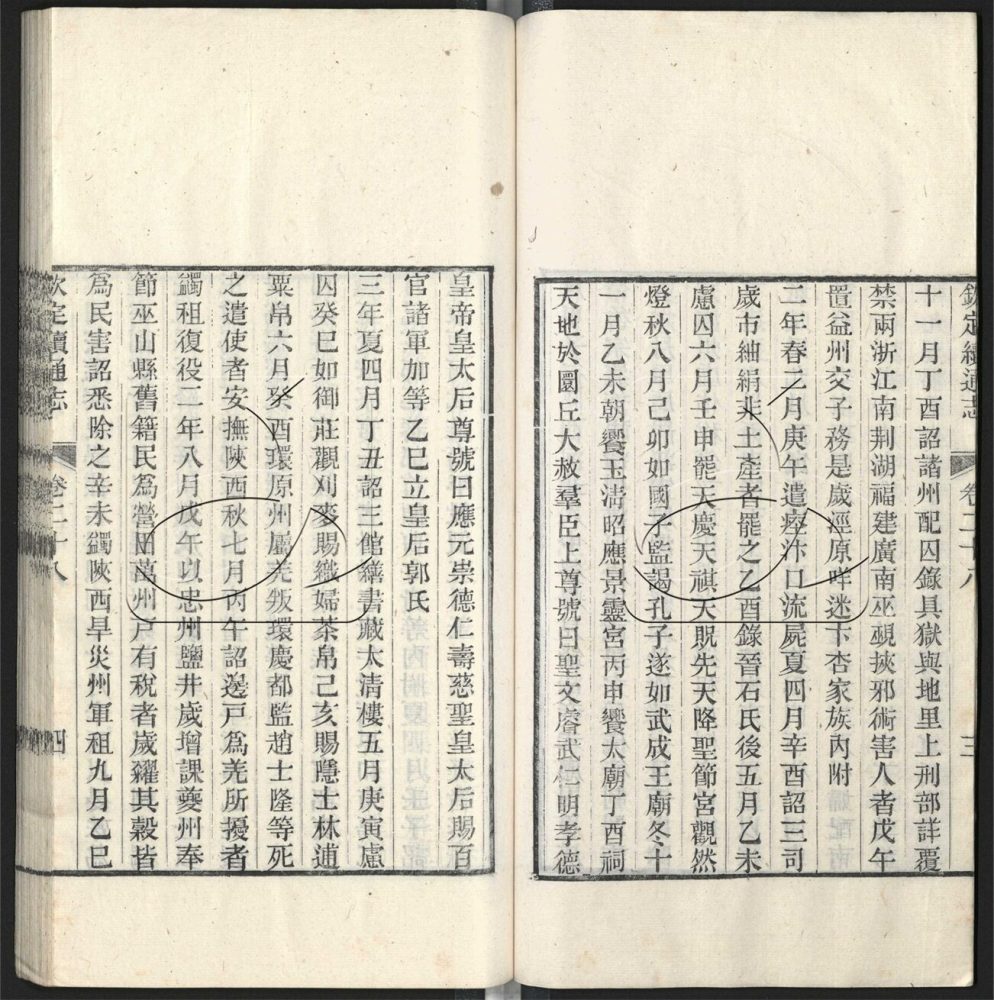 欽定續通志
卷二十八
三
十一月丁酉詔諸州配囚錄具獄與地里上刑部詳覆
禁兩浙江南荆湖福建廣南巫覡挾邪術害人者戊午
置益州交子務是歲涇原咩迷卞杏家族內附
二年春二月庚午遣瘞汴口流屍夏四月辛酉詔三司
歲市紬絹非土產者罷之乙酉錄晉石氏後五月乙未
慮囚六月壬申罷天慶天祺天貺先天降聖節宮觀然
燈秋八月己卯如國子監謁孔子遂如武成王廟冬十
一月乙未朝饗玉清昭應景靈宮丙申饗太廟丁酉祠
天地於圜丘大赦羣臣上尊號曰聖文睿武仁明孝德
皇帝皇太后尊號曰應元崇德仁壽慈聖皇太后賜百
官諸軍加等乙巳立皇后郭氏
三年夏四月丁丑詔三館繕書藏太清樓五月庚寅慮
囚癸巳如御莊觀刈麥賜織婦茶帛己亥賜隱士林逋
粟帛六月癸酉環原州屬羌叛環慶都監趙士隆等死
之遣使者安撫陝西秋七月丙午詔邊戸爲羌所擾者
蠲租復役二年八月戊午以忠州鹽井歲增課夔州奉
節巫山縣舊籍民爲營田萬州戸有稅者歲糴其穀皆
爲民害詔悉除之辛未蠲陝西旱災州軍租九月乙巳
欽定續通志
卷二十八
四